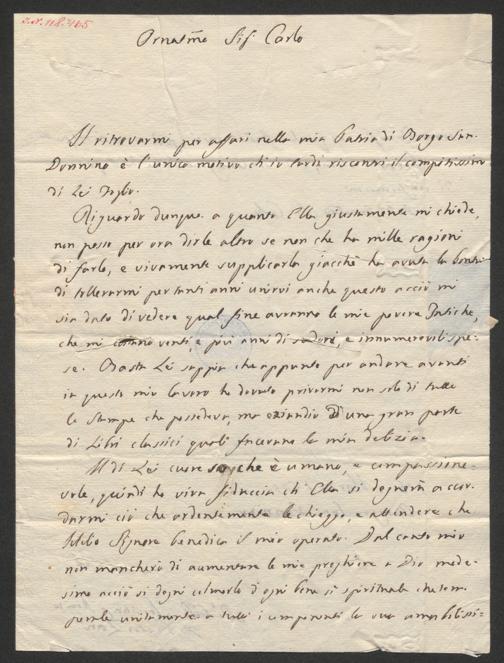 I.N. 118.465
Ornatmo Sig.r Carlo
Il ritrovarmi per affari nella mia Patria di Borgo San-
Donnino è l'unico motivo ch'io tardi riscontri il compitissimo
di Lei foglio.
Riguardo dunque a quanto Ella giustamente mi chiede,
non posso per ora dirle altro se non che ha mille ragioni
di farlo, e vivamente supplicarla giacchè ha avuta la bontà
di tollerarmi per tanti anni unirvi anche questo acciò mi
sia dato di vedere qual fine avranno le mie povere fatiche,
che mi costano venti e più anni di sudori, e innumerevoli spe-
se. Basta Lei sappia che appunto per andare avanti
in questo mio lavoro ho dovuto privarmi non solo di tutte
le Stampe che possedeva, ma eziandio d'una gran parte
di Libri classici quali facevano la mia delizia.
Il di Lei cuore so che è umano, e compassione-
vole, quindi ho viva fiducia ch'Ella si degnerà accor-
darmi ciò che ardentemente le chieggo, e attendere che
Iddio Signore benedica il mio operato. Dal canto mio
non mancherò di aumentare le mie preghiere a Dio mede-
simo acciò si degni colmarlo d'ogni bene sì spirituale che tem-
porale unitamente a tutti i componenti la sua amabilissi-